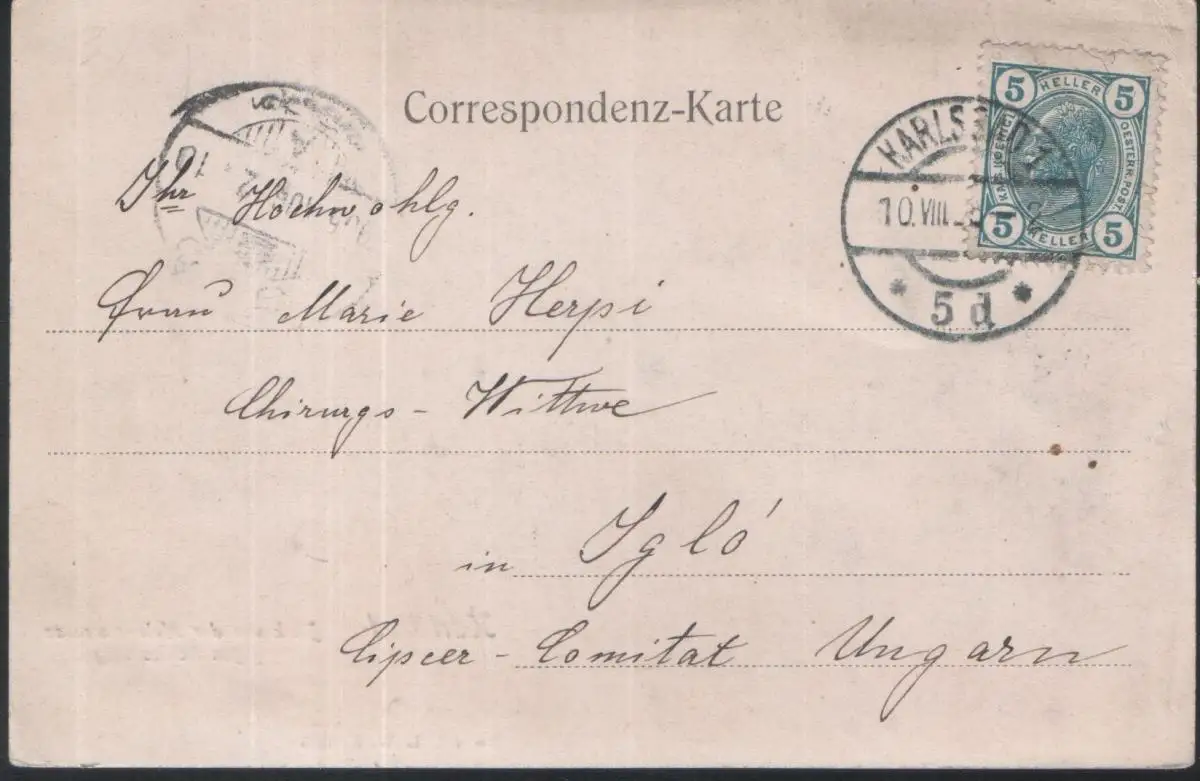 Correspondenz-Karte
5 HELLER 5
KAIS. KOENIGL.
OESTERR. POST.
5 HELLER 5
10.VIII.
* 5 d *
Ihr Hochwohlg.
Frau Marie Herpi
Chirurgs - Wittwe
in Igló
Zipser - Comitat Ungarn